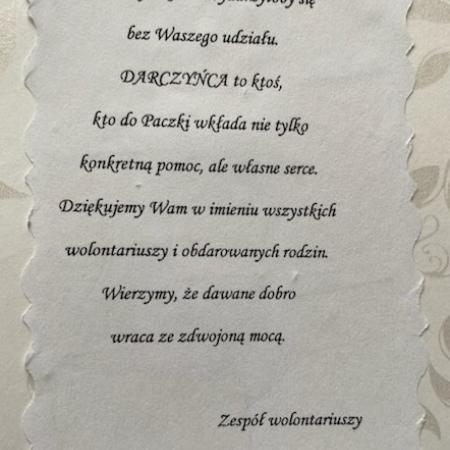 się
bez Waszego udziału.
DARCZYŃCA to ktoś,
kto do Paczki wkłada nie tylko
konkretną pomoc, ale własne serce.
Dziękujemy Wam w imieniu wszystkich
wolontariuszy i obdarowanych rodzin.
Wierzymy, że dawane dobro
wraca ze zdwojoną mocą.
Zespół wolontariuszy